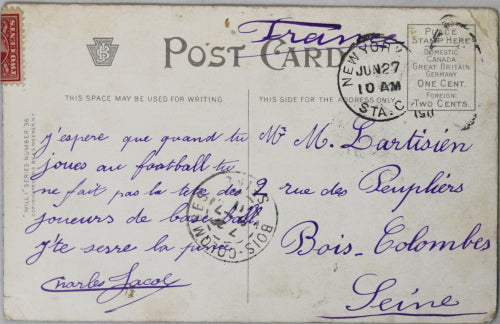 France
TWO CENTS
POST CARD
PLACE
STAMP HERE
DOMESTIC
CANADA
GREAT BRITAIN
GERMANY
ONE CENT.
FOREIGN
TWO CENTS.
NEW YORK
JUN 27
10 AM
STA. C
THIS SPACE MAY BE USED FOR WRITING
THIS SIDE OF CARD IS FOR ADDRESS
"WILLI" SERIES NUMBER 36
j'espere que quand tu
joues au football tu
ne fait pas la tete des
joueurs de base-ball
j'te serre la
Charles Jacob
BOIS-COLOMBES
SEINE
Mr M. Lartisien
2 rue des Peupliers
Bois-Colombes
Seine